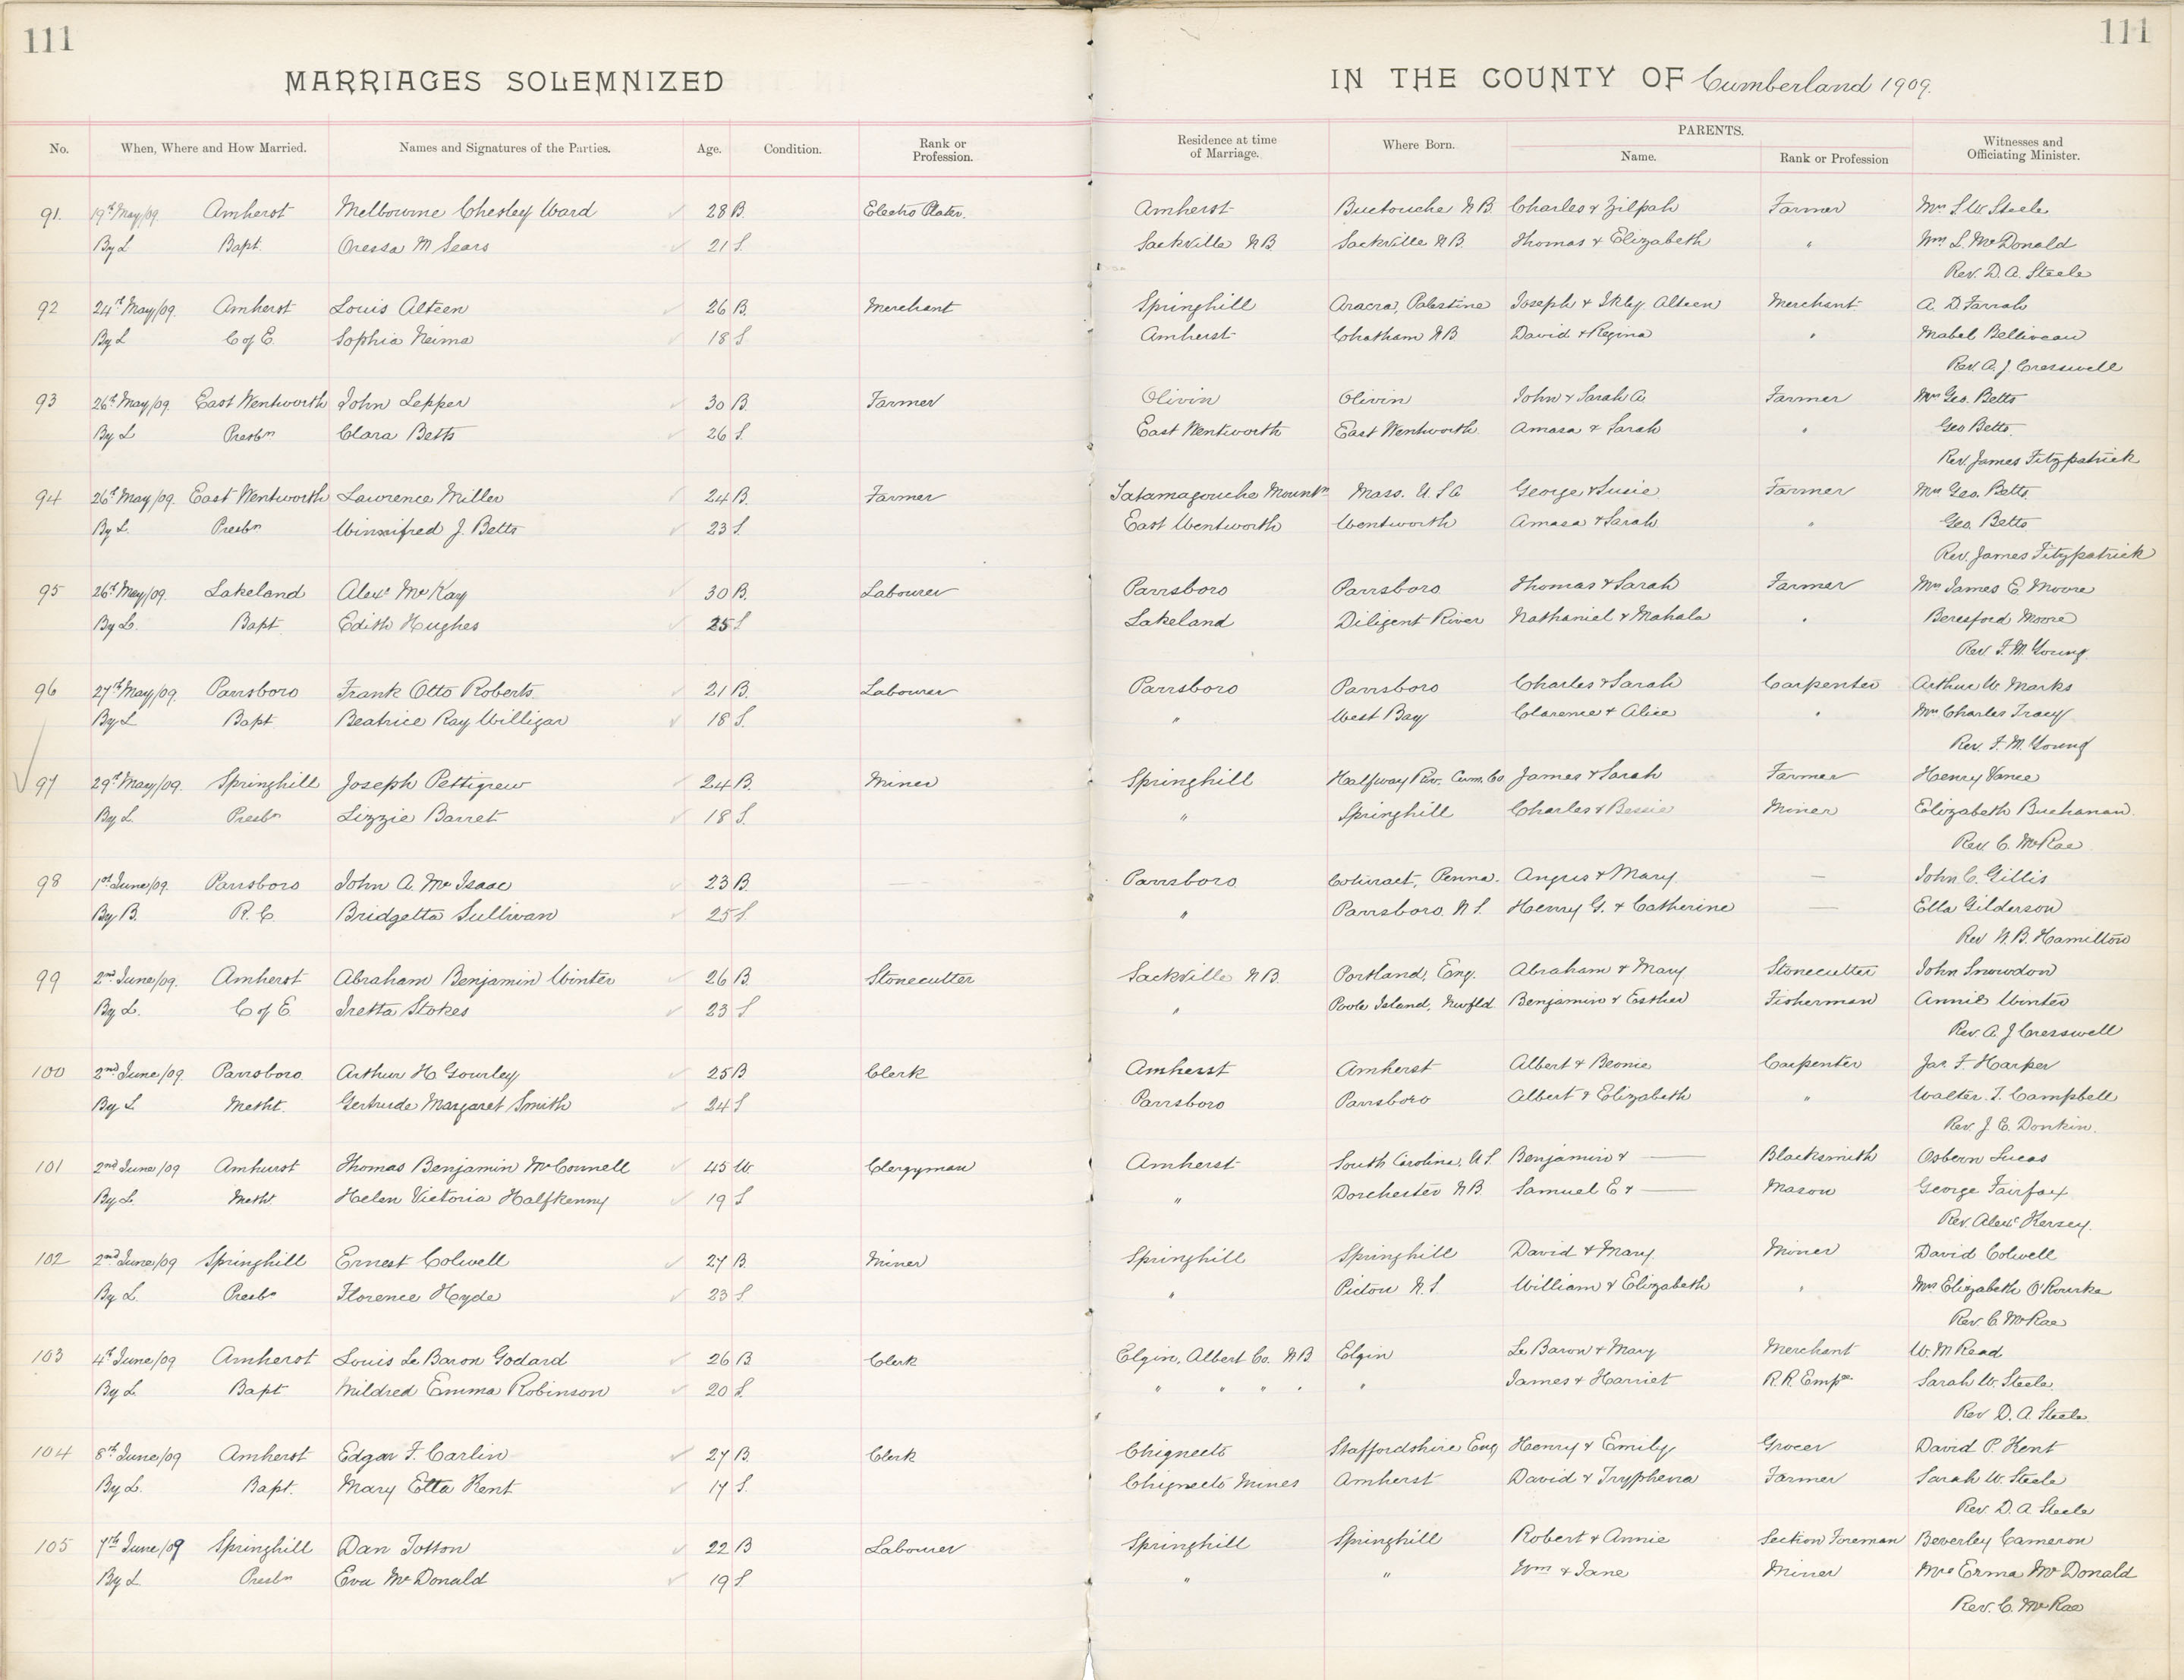 111
111
MARRIAGES SOLEMNIZED
IN THE COUNTY OF Cumberland 1909.
No. When, Where and How Married. Names and Signatures of the Parties. Age. Condition. Rank or Profession. Residence at time of Marriage. Where Born. PARENTS. Name. Rank or Profession Witnesses and Officiating Minister.
91. 19th May/09. Amherst Melbourne Chesley Ward 28 B. Electro Plater. Amherst Buctouche N.B. Charles & Zilpah Farmer Mrs S.W. Steele
By L Bapt. Oressa M Sears 21 S. Sackville N B Sackville N.B. Thomas & Elizabeth " Wm L. McDonald
Rev. D. A. Steele
92 24th May/09. Amherst Louis Alteen 26 B. Merchant Springhill Palestine Joseph & Alteen Merchant A. D Farrah
By L C of E. Sophia Neima 18 S. Amherst Chatham N B David & Regina " Mabel Belliveau
Rev. A. J Cresswell
93 26th May/09. East Wentworth John Lepper 30 B. Farmer Olivin Olivin John & Sarah A Farmer Mrs Geo. Betts
By L Presbn Clara Betts 26 S. East Wentworth East Wentworth Amasa & Sarah " Geo Betts.
Rev. James Fitzpatrick
94 26th May/09. East Wentworth Lawrence Miller 24 B. Farmer Tatamagouche Mountn Mass. U.S.A George & Susie Farmer Mrs Geo. Betts
By L. Presbn Winnifred J. Betts 23 S. East Wentworth Wentworth Amasa & Sarah " Geo. Betts
Rev. James Fitzpatrick
95 26th May/09. Lakeland Alexr McKay 30 B. Labourer Parrsboro Parrsboro Thomas & Sarah Farmer Mrs James E. Moore
By L. Bapt. Edith Hughes 25 S Lakeland Diligent River Nathaniel & Mahala " Beresford Moore
Rev F. M. Young.
96 27th May/09. Parrsboro Frank Otto Roberts 21 B. Labourer Parrsboro Parrsboro Charles & Sarah Carpenter Arthur W. Marks
By L Bapt. Beatrice Ray Willigar 18 S. " West Bay Clarence & Alice " Mrs Charles Tracy
Rev. F. M. Young
97 29th May/09. Springhill Joseph Pettigrew 24 B. Miner Springhill Halfway Riv. Cum. Co James & Sarah Farmer Henry Vance
By L Presbn Lizzie Barret 18 S. " Springhill Charles & Bessie Miner Elizabeth Buchanan
Rev. C. McRae
98 1st June/09. Parrsboro John A. McIsaac 23 B. — Parrsboro Penna. Angus & Mary — John C. Gillis
By B. R. C. Bridgetta Sullivan 25 S. " Parrsboro N.S. Henry G. & Catherine — Ella Gilderson
Rev N. B. Hamilton
99 2nd June/09. Amherst Abraham Benjamin Winter 26 B. Stonecutter Sackville N.B. Portland, Eng. Abraham & Mary Stonecutter John Snowdon
By L. C of E Iretta Stokes 23 S " Poole Island, Newfld Benjamin & Esther Fisherman Annie Winter
Rev. A. J Cresswell
100 2nd June/09. Parrsboro. Arthur H. Gourley 25 B Clerk Amherst Amherst Albert & Carpenter Jas. F. Harper
By L Metht. Gertrude Margaret Smith 24 S Parrsboro Parrsboro Albert & Elizabeth " Walter. T. Campbell
Rev. J. E. Donkin.
101 2nd June/09 Amhurst Thomas Benjamin McConnell 45 W Clergyman Amherst South Carolina, U.S. Benjamin & — Blacksmith Osborn Lucas
By L. Metht. Helen Victoria Halfkenny 19 S " Dorchester N B. Samuel E & — Mason George Fairfax
Rev. Alexr Kersey.
102 2nd June/09 Springhill Ernest Colwell 27 B. Miner Springhill Springhill David & Mary Miner David Colwell
By L Presbn Florence Hyde 23 S " Pictou N.S. William & Elizabeth " Mrs Elizabeth O'Rourke
Rev. C. McRae
103 4th June/09 Amherst Louis Le Baron Godard 26 B Clerk Elgin, Albert Co. N.B. Elgin Le Baron & Mary Merchant W. M Read
By L Bapt Mildred Emma Robinson 20 S. " " " " " James & Harriet R.R. Empee Sarah W. Steele.
Rev D. A Steele
104 8th June/09 Amherst Edgar F. Carlin 27 B. Clerk Chignecto Staffordshire Eng Henry & Emily Grocer David P. Kent
By L. Bapt. Mary Etta Kent 17 S. Chignecto Mines Amherst David & Tryphena Farmer Sarah W. Steele
Rev. D. A Steele
105 7th June/09 Springhill Dan Totton 22 B Labourer Springhill Springhill Robert & Annie Section Foreman Beverley Cameron
By L Presbn Eva McDonald 19 S. " " Wm & Jane Miner Mrs Erma McDonald
Rev. C. McRae